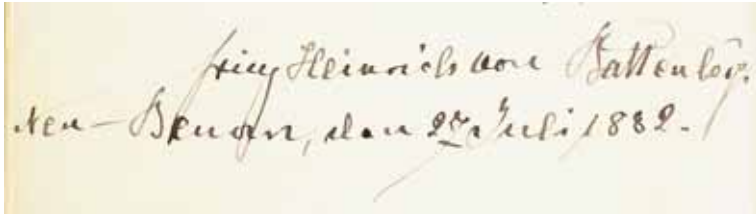 Prinz Heinrich von Battenberg.
Neu-Benann, den 27 Juli 1882.